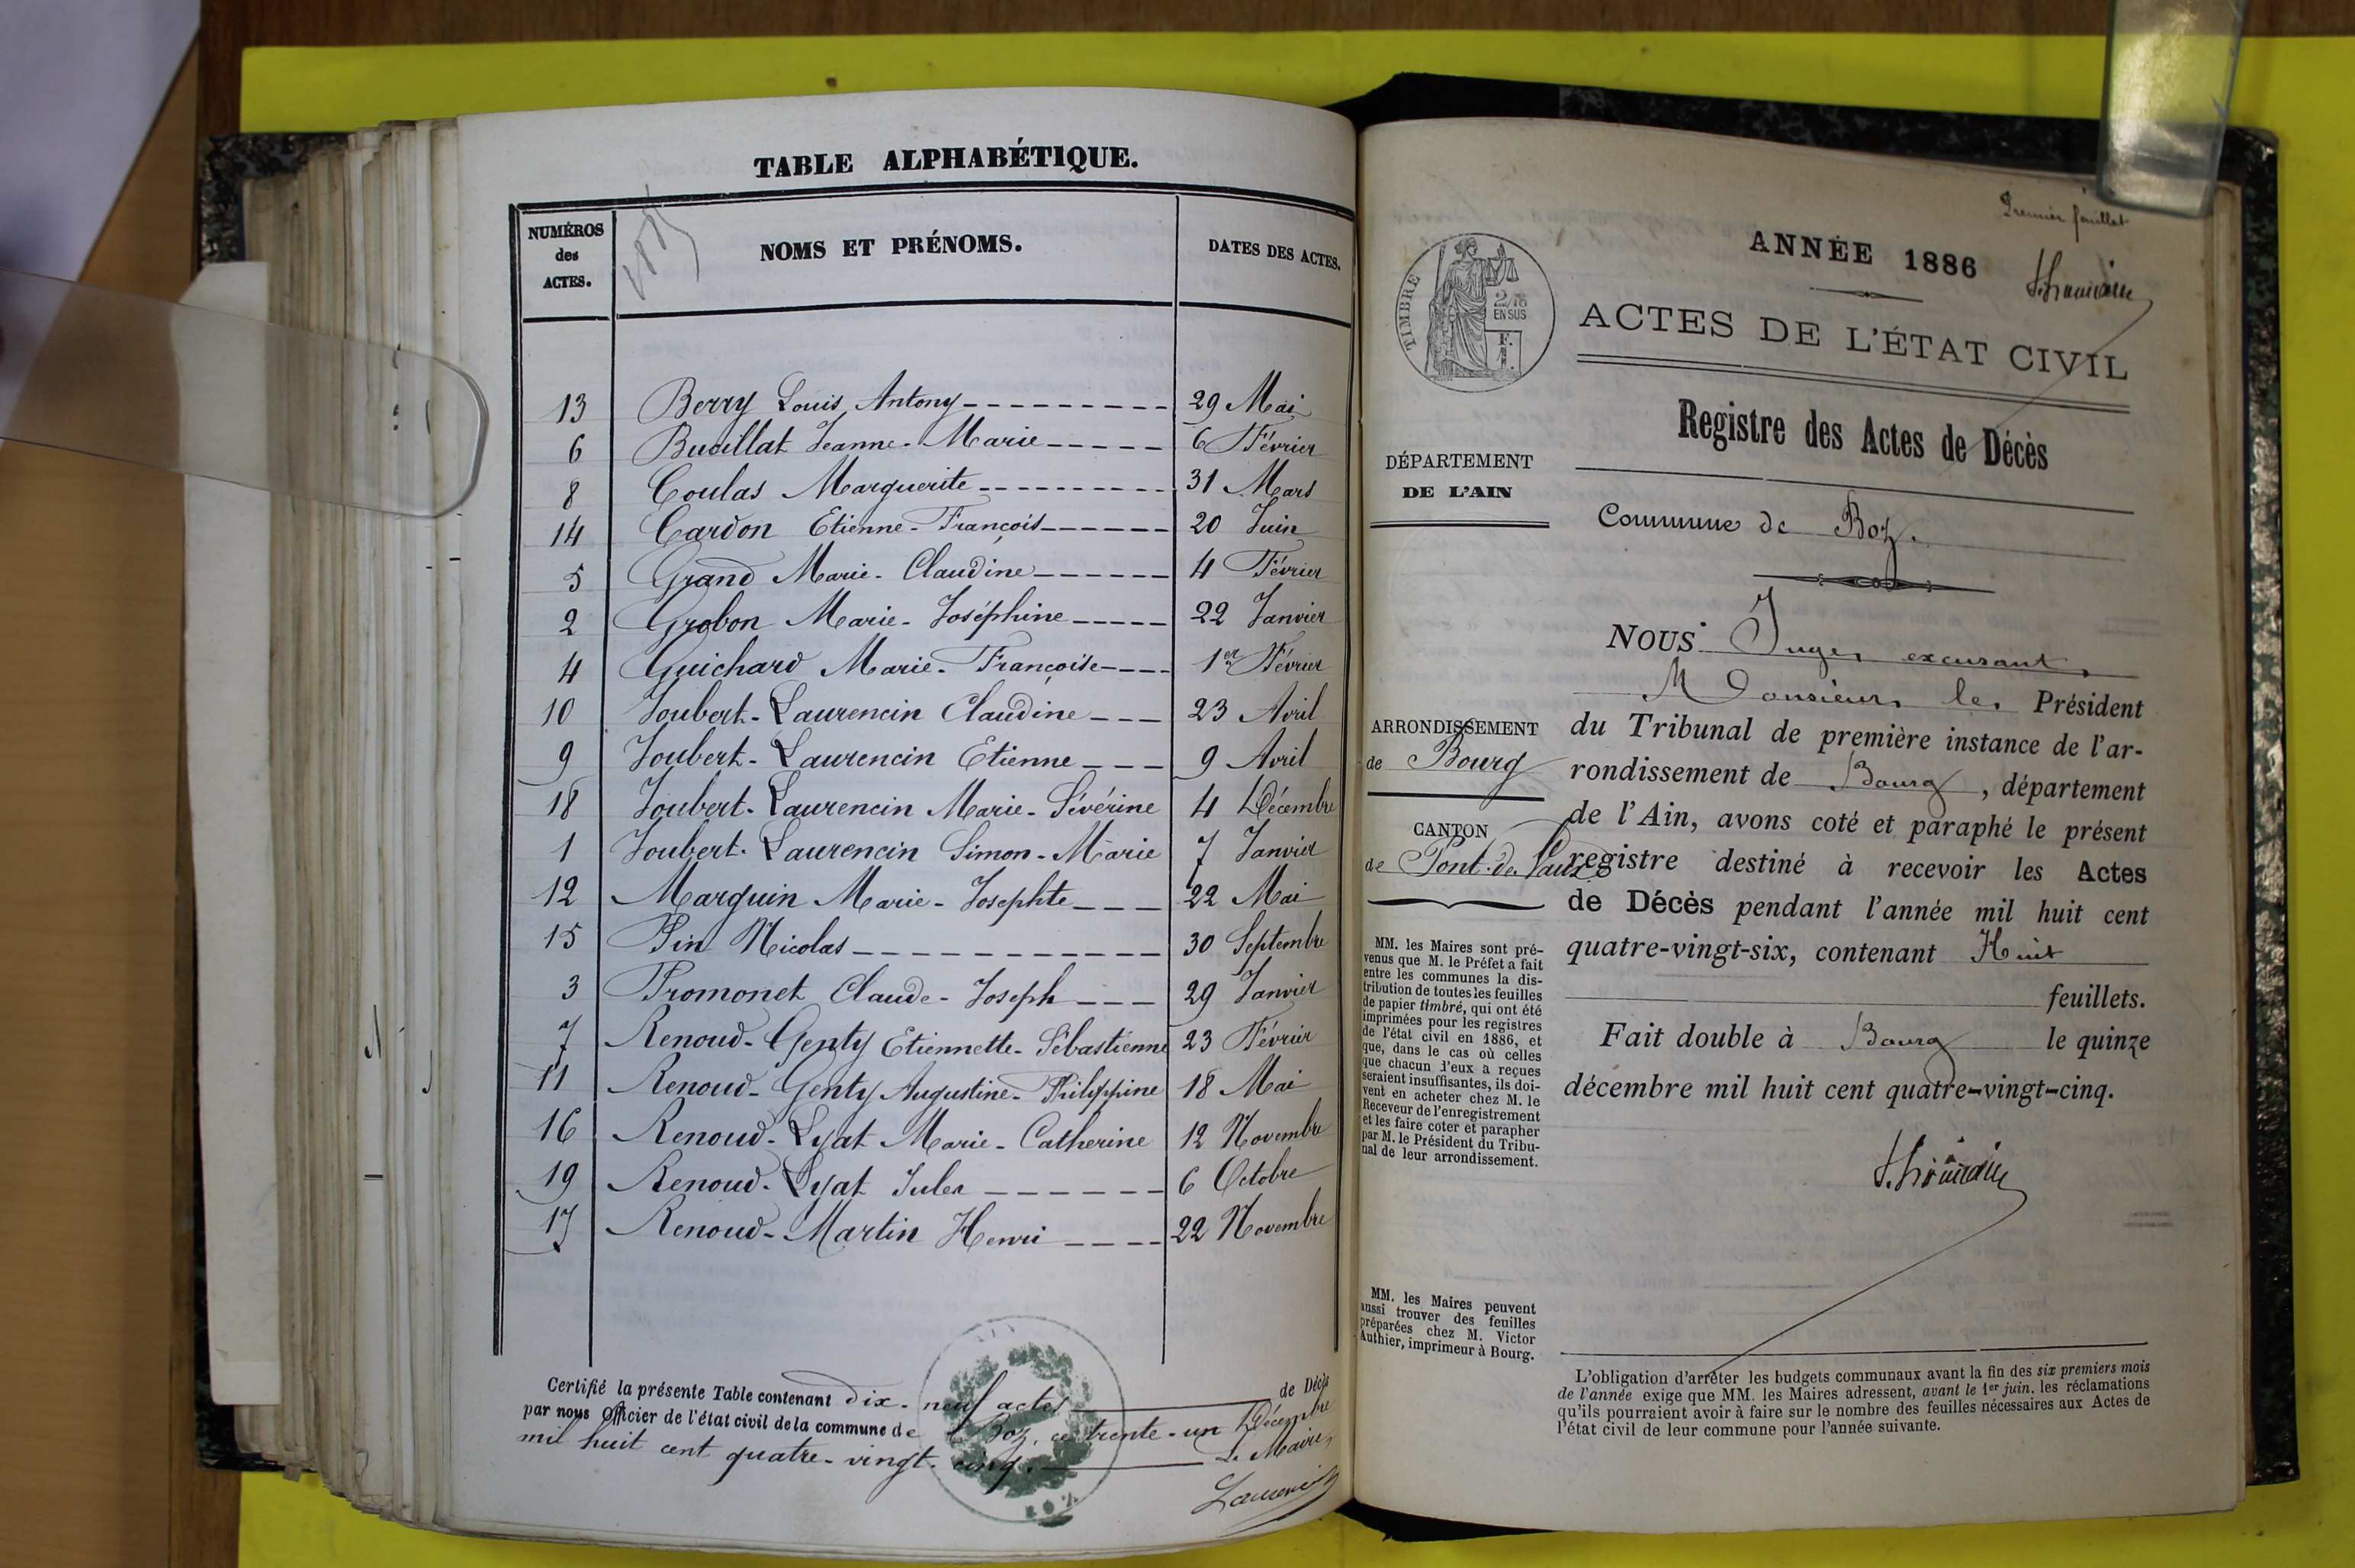 TABLE ALPHABÉTIQUE.
NUMÉROS des ACTES.
1885
NOMS ET PRÉNOMS.
DATES DES ACTES.
13 Berry Louis Antony 29 Mai
6 Buvillat Jeanne-Marie 6 Février
8 Coulas Marguerite 31 Mars
14 Cardon Etienne-François 20 Juin
5 Grand Marie-Claudine 4 Février
2 Grobon Marie-Joséphine 22 Janvier
4 Guichard Marie-Françoise 1er Février
10 Joubert-Laurencin Claudine 23 Avril
9 Joubert-Laurencin Etienne 9 Avril
18 Joubert-Laurencin Marie-Sévérine 4 Décembre
1 Joubert-Laurencin Simon-Marie 7 Janvier
12 Marguin Marie-Josephte 22 Mai
15 Pin Nicolas 30 Septembre
3 Promonet Claude-Joseph 29 Janvier
7 Renoud-Genty Etiennette-Sébastienne 23 Février
11 Renoud-Genty Augustine-Philippine 18 Mai
16 Renoud-Lyat Marie-Catherine 12 Novembre
19 Renoud-Lyat Jules 6 Octobre
17 Renoud-Martin Henri 22 Novembre
Certifié la présente Table contenant dix-neuf actes de Décès
par nous Officier de l'état civil de la commune de Boz, ce trente-un Décembre
mil huit cent quatre-vingt-cinq.
Le Maire,
Laurencin
Premier feuillet
TIMBRE
2/10
EN SUS
F.
1.
ANNÉE 1886
ACTES DE L'ÉTAT CIVIL
Registre des Actes de Décès
DÉPARTEMENT
DE L'AIN
Commune de Boz.
ARRONDISSEMENT
de Bourg
CANTON
de Pont-de-Vaux
MM. les Maires sont pré-
venus que M. le Préfet a fait
entre les communes la dis-
tribution de toutes les feuilles
de papier timbré, qui ont été
imprimées pour les registres
de l'état civil en 1886, et
que, dans le cas où celles
que chacun d'eux a reçues
seraient insuffisantes, ils doi-
vent en acheter chez M. le
Receveur de l'enregistrement
et les faire coter et parapher
par M. le Président du Tribu-
nal de leur arrondissement.
MM. les Maires peuvent
aussi trouver des feuilles
préparées chez M. Victor
Authier, imprimeur à Bourg.
NOUS Juge, excusant
Monsieur le Président
du Tribunal de première instance de l'ar-
rondissement de Bourg, département
de l'Ain, avons coté et paraphé le présent
registre destiné à recevoir les Actes
de Décès pendant l'année mil huit cent
quatre-vingt-six, contenant Huit
feuillets.
Fait double à Bourg le quinze
décembre mil huit cent quatre-vingt-cinq.
L'obligation d'arrêter les budgets communaux avant la fin des six premiers mois
de l'année exige que MM. les Maires adressent, avant le 1er juin, les réclamations
qu'ils pourraient avoir à faire sur le nombre des feuilles nécessaires aux Actes de
l'état civil de leur commune pour l'année suivante.